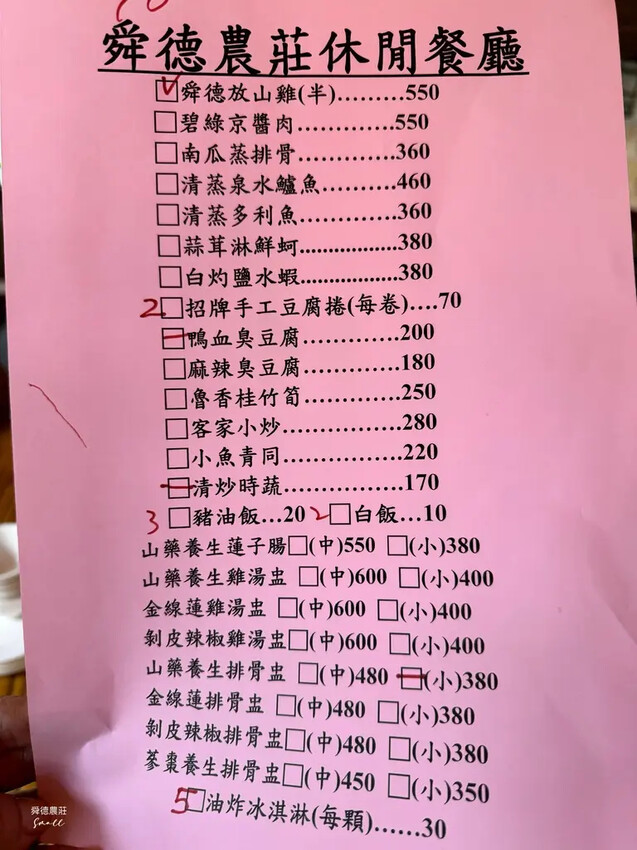 舜德農莊休閒餐廳
舜德放山雞(半).........550
碧綠京醬肉.............550
南瓜蒸排骨.............360
清蒸泉水鱸魚..........460
清蒸多利魚.............360
蒜茸淋鮮蚵..................380
白灼鹽水蝦..................380
2 招牌手工豆腐捲(每卷)....70
鴨血臭豆腐.............200
麻辣臭豆腐.............180
魯香桂竹筍.............250
客家小炒................280
小魚青同................220
清炒時蔬................170
3 豬油飯...20 2 白飯...10
山藥養生蓮子腸□(中)550 □(小)380
山藥養生雞湯盅 □(中)600 □(小)400
金線蓮雞湯盅 □(中)600 □(小)400
剝皮辣椒雞湯盅□(中)600 □(小)400
山藥養生排骨盅 □(中)480 □(小)380
金線蓮排骨盅 □(中)480 □(小)380
剝皮辣椒排骨盅□(中)480 □(小)380
蔘棗養生排骨盅□(中)450 □(小)350
5 油炸冰淇淋(每顆)......30
舜德農莊